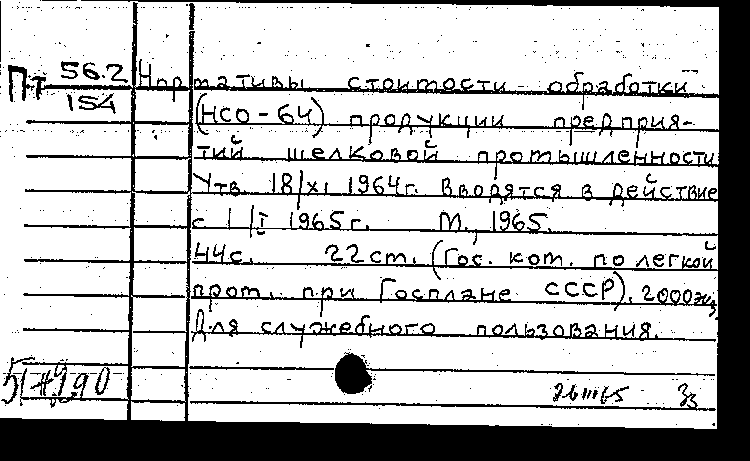 Пт 56.2 Нормативы стоимости обработки
154 (НСО-64) продукции предприя-
тий шелковой промышленности
Утв. 18/XI 1964г. Вводятся в действие
с 1/I 1965г. М., 1965.
44с. 22см. (Гос. ком. по легкой
пром. при Госплане СССР). 2000экз.
Для служебного пользования.
26 III 65